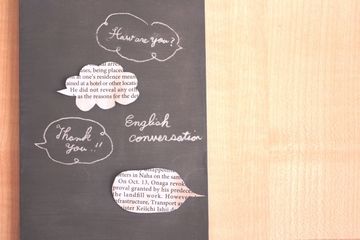 How are you?
arries, being placed
at one's residence mean
ained at a hotel or other locatio
He did not reveal any oth
as the reasons for the det
English
conversation
Thank
you..!!
disappointed
ters in Naha on the sam
On Oct. 13, Onaga revok
proval granted by his predece
the landfill work. Howeve
frastructure, Transport a
ister Keiichi Ishii